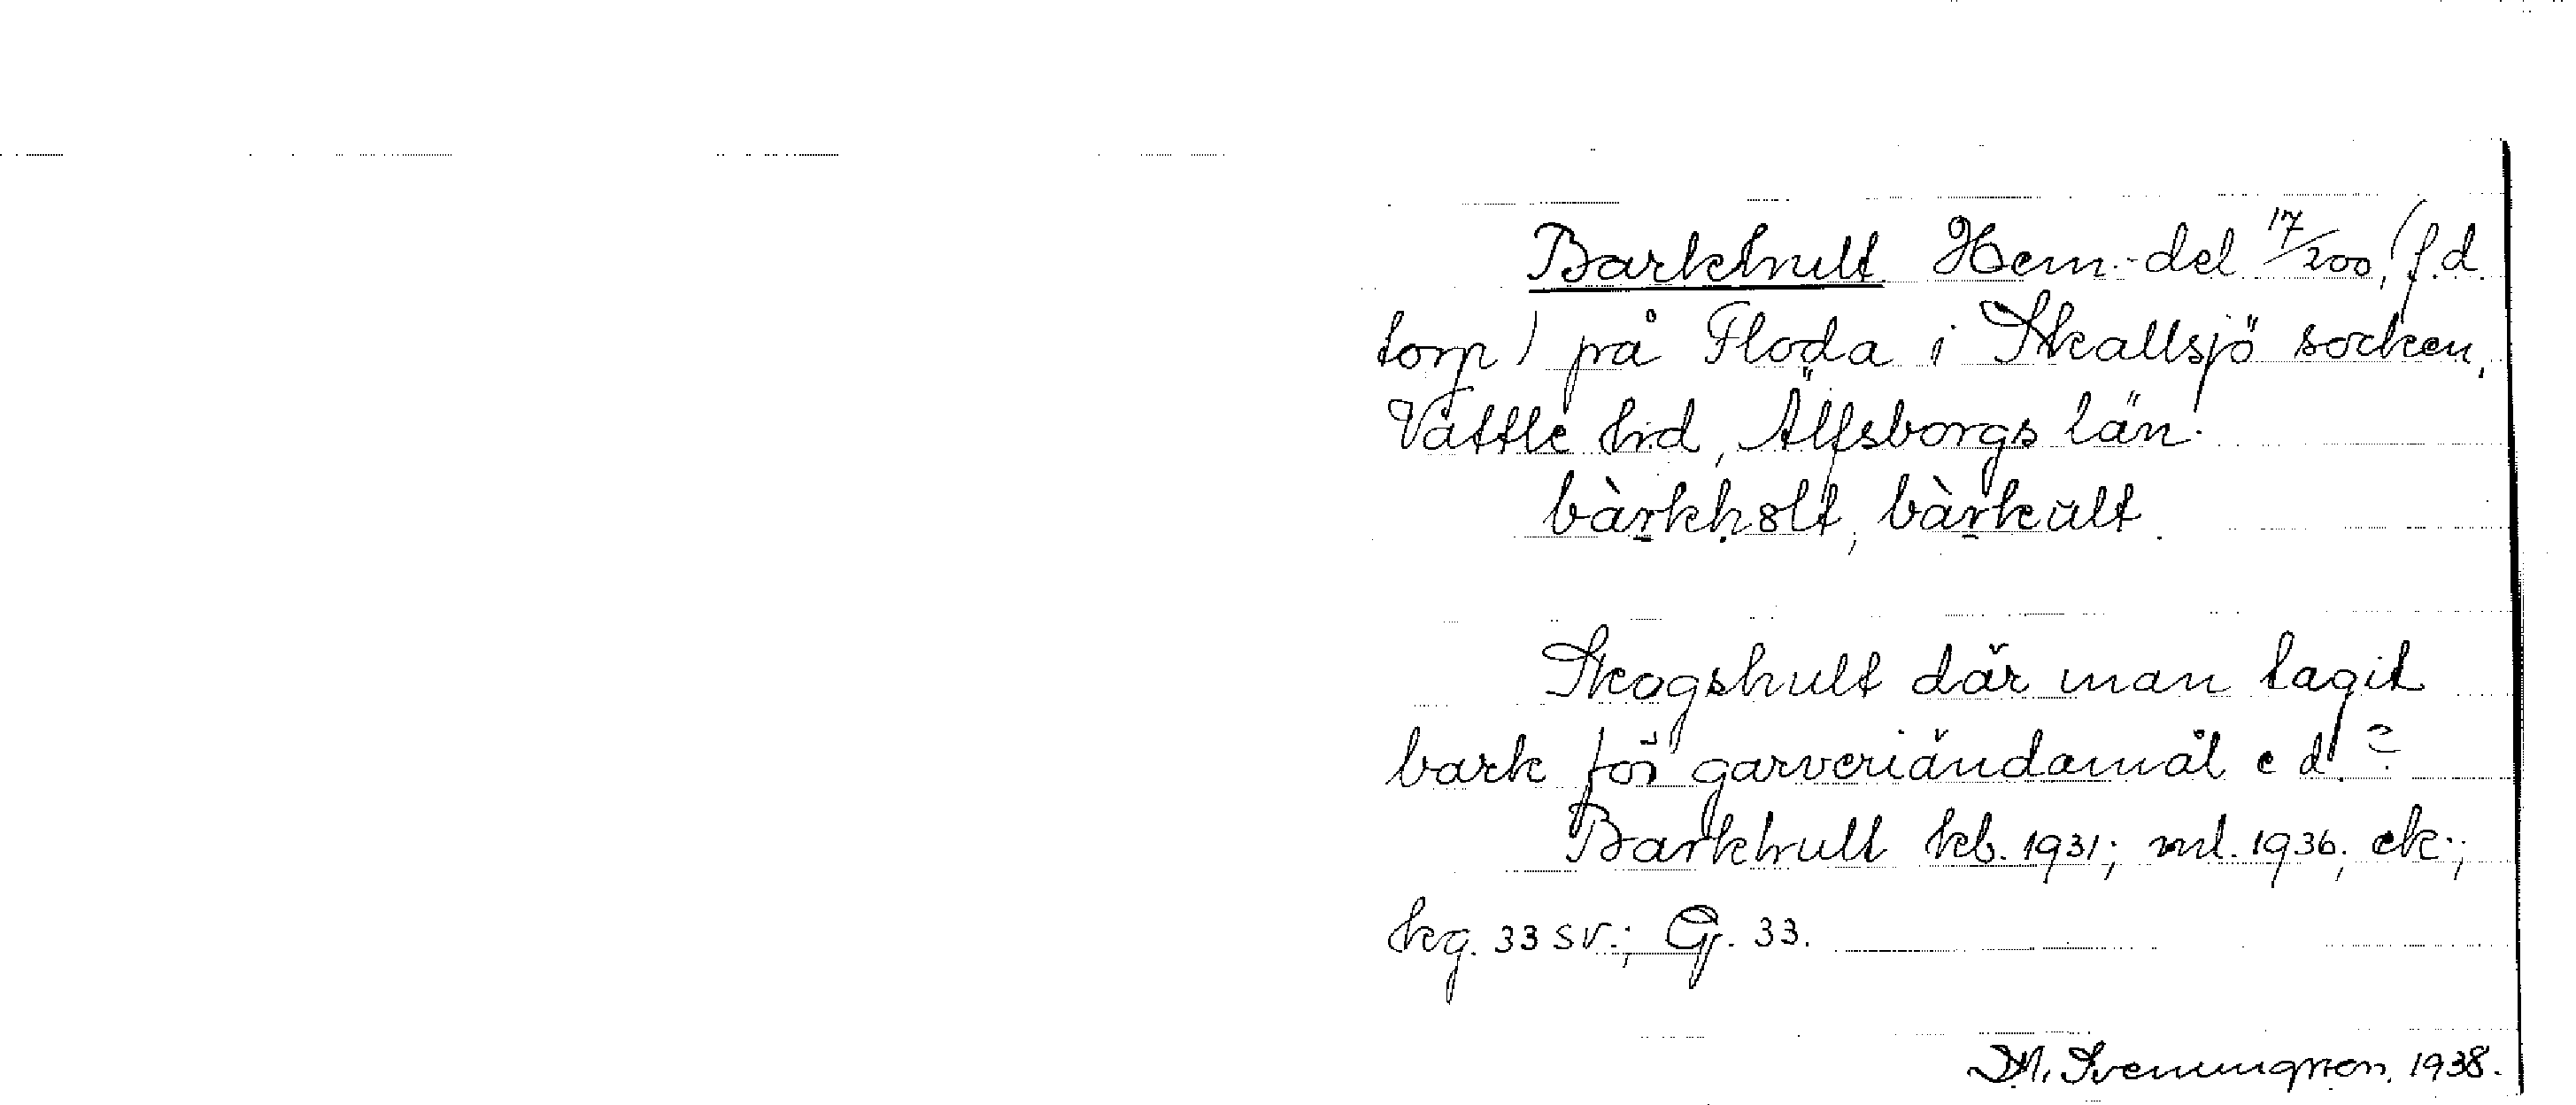 Barkhult Hem.-del 17/200, (f.d.
torp) på Floda i Skallsjö socken,
Vättle hd, Älfsborgs län.
bàrkhalt, bàrkult.
Skogshult där man tagit
bark för garveriändamål e d.?
Barkhult kb. 1931; ml. 1936; ek.;
kg. 33 sv.; Gj. 33.
M. Svenungsson. 1938.